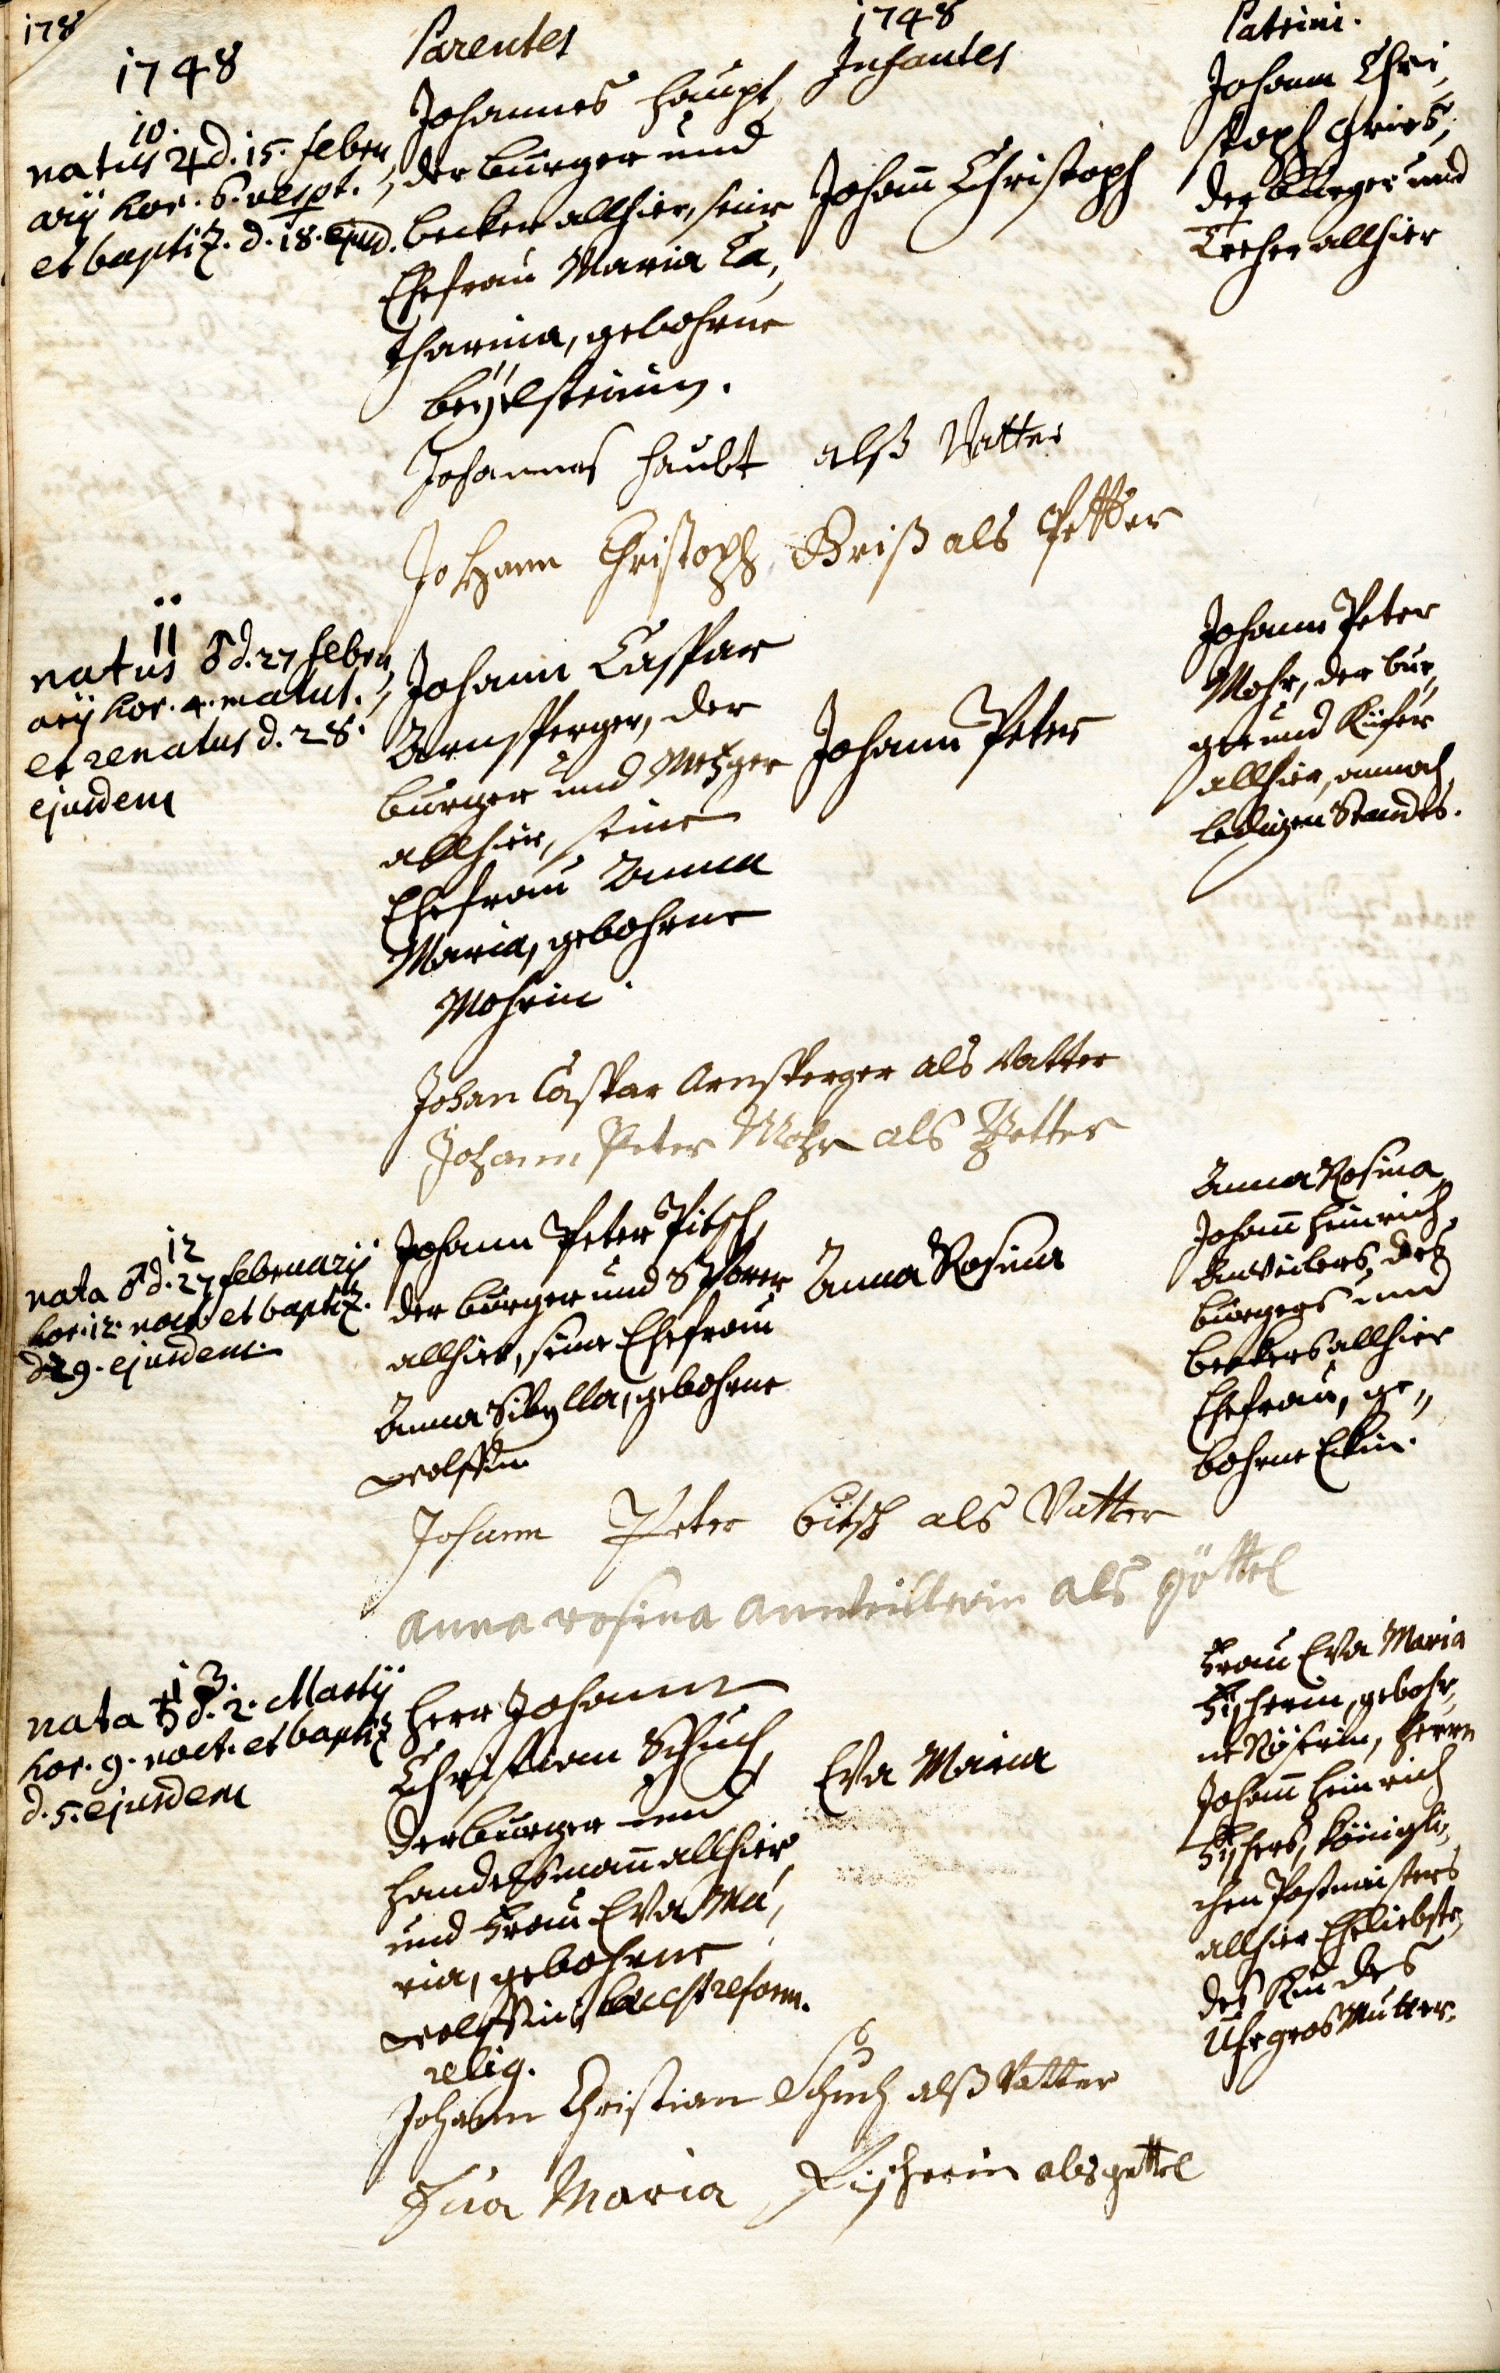 178
1748
Parentes
1748
Infantes
Patrini.
10.
natus ♃ d. 15. Febru,
arij hor. 6. vespt.
et baptiz. d. 18. ejusd.
Johannes Haupt,
der burger und
becker allhier, seine
Ehefrau Maria Ca,
tharina, gebohrne
beÿelsteinin.
Johann Christoph
Johann Chri,
stoph Gries,
der burger und
allhier
Johannes Haubt alß Vatter
Johann Christoph Griß als Petter
11
natus ♂ d. 27 Febru,
arij hor. 4. matut.
et renatus d. 28.
ejusdem
Johann Caspar
Arnsperger, der
burger und Metzger
allhier, seine
Ehefrau Anna
Maria, gebohrne
Mohrin.
Johann Peter
Johann Peter
Mohr, der bur,
ger und Küfer
allhier, annoch
ledigen Standes.
Johan Caspar Arnsperger als Vatter
Johann Peter Mohr als Petter
12
nata ♂ d. 27 Februarij
hor. 12. noct. et baptiz.
d. 29. ejusdem.
Johann Peter Pitsch,
der burger und Sporer
allhier, seine Ehefrau
Anna Sibylla, gebohrne
Wolffin
Anna Rosina
Anna Rosina,
Johann Heinrich
Anweilers, des
burgers und
beckers allhier
Ehefrau, ge,,
bohrne Eckin.
Johann Peter bitsch als Vatter
anna rosina anweillerin als göttel
13.
nata ♄ d. 2. Martij
hor. 9. noct. et baptiz
d. 5. ejusdem
Herr Johann
Christian Schuch,
der burger und
Handelsmann allhier,
und Frau Eva Ma,
ria, gebohrne
Wolffin, reform.
relig.
Eva Maria
Frau Eva Maria
Fischerin, gebohr,
ne Röserin, Herrn
Johann Heinrich
Fischers, königli,
chen Postmeisters
allhier Eheliebste,
des Kindes
Uhrgros Mutter.
Johann Christian Schuch alß Vatter
Eva Maria Fischerin als gettel